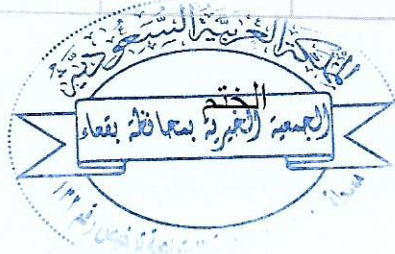 المملكة العربية السعودية
الختم
الجمعية الخيرية بمحافظة بقعاء
ترخيص رقم ١٣٢